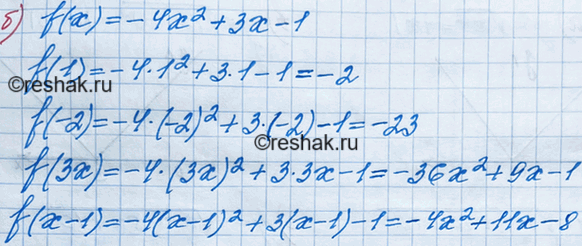 б) f(x)=-4x²+3x-1
f(1)=-4·1²+3·1-1=-2
©reshak.ru
©reshak.ru
f(-2)=-4·(-2)²+3·(-2)-1=-23
©reshak.ru
f(3x)=-4·(3x)²+3·3x-1=-36x²+9x-1
f(x-1)=-4(x-1)²+3(x-1)-1=-4x²+11x-8